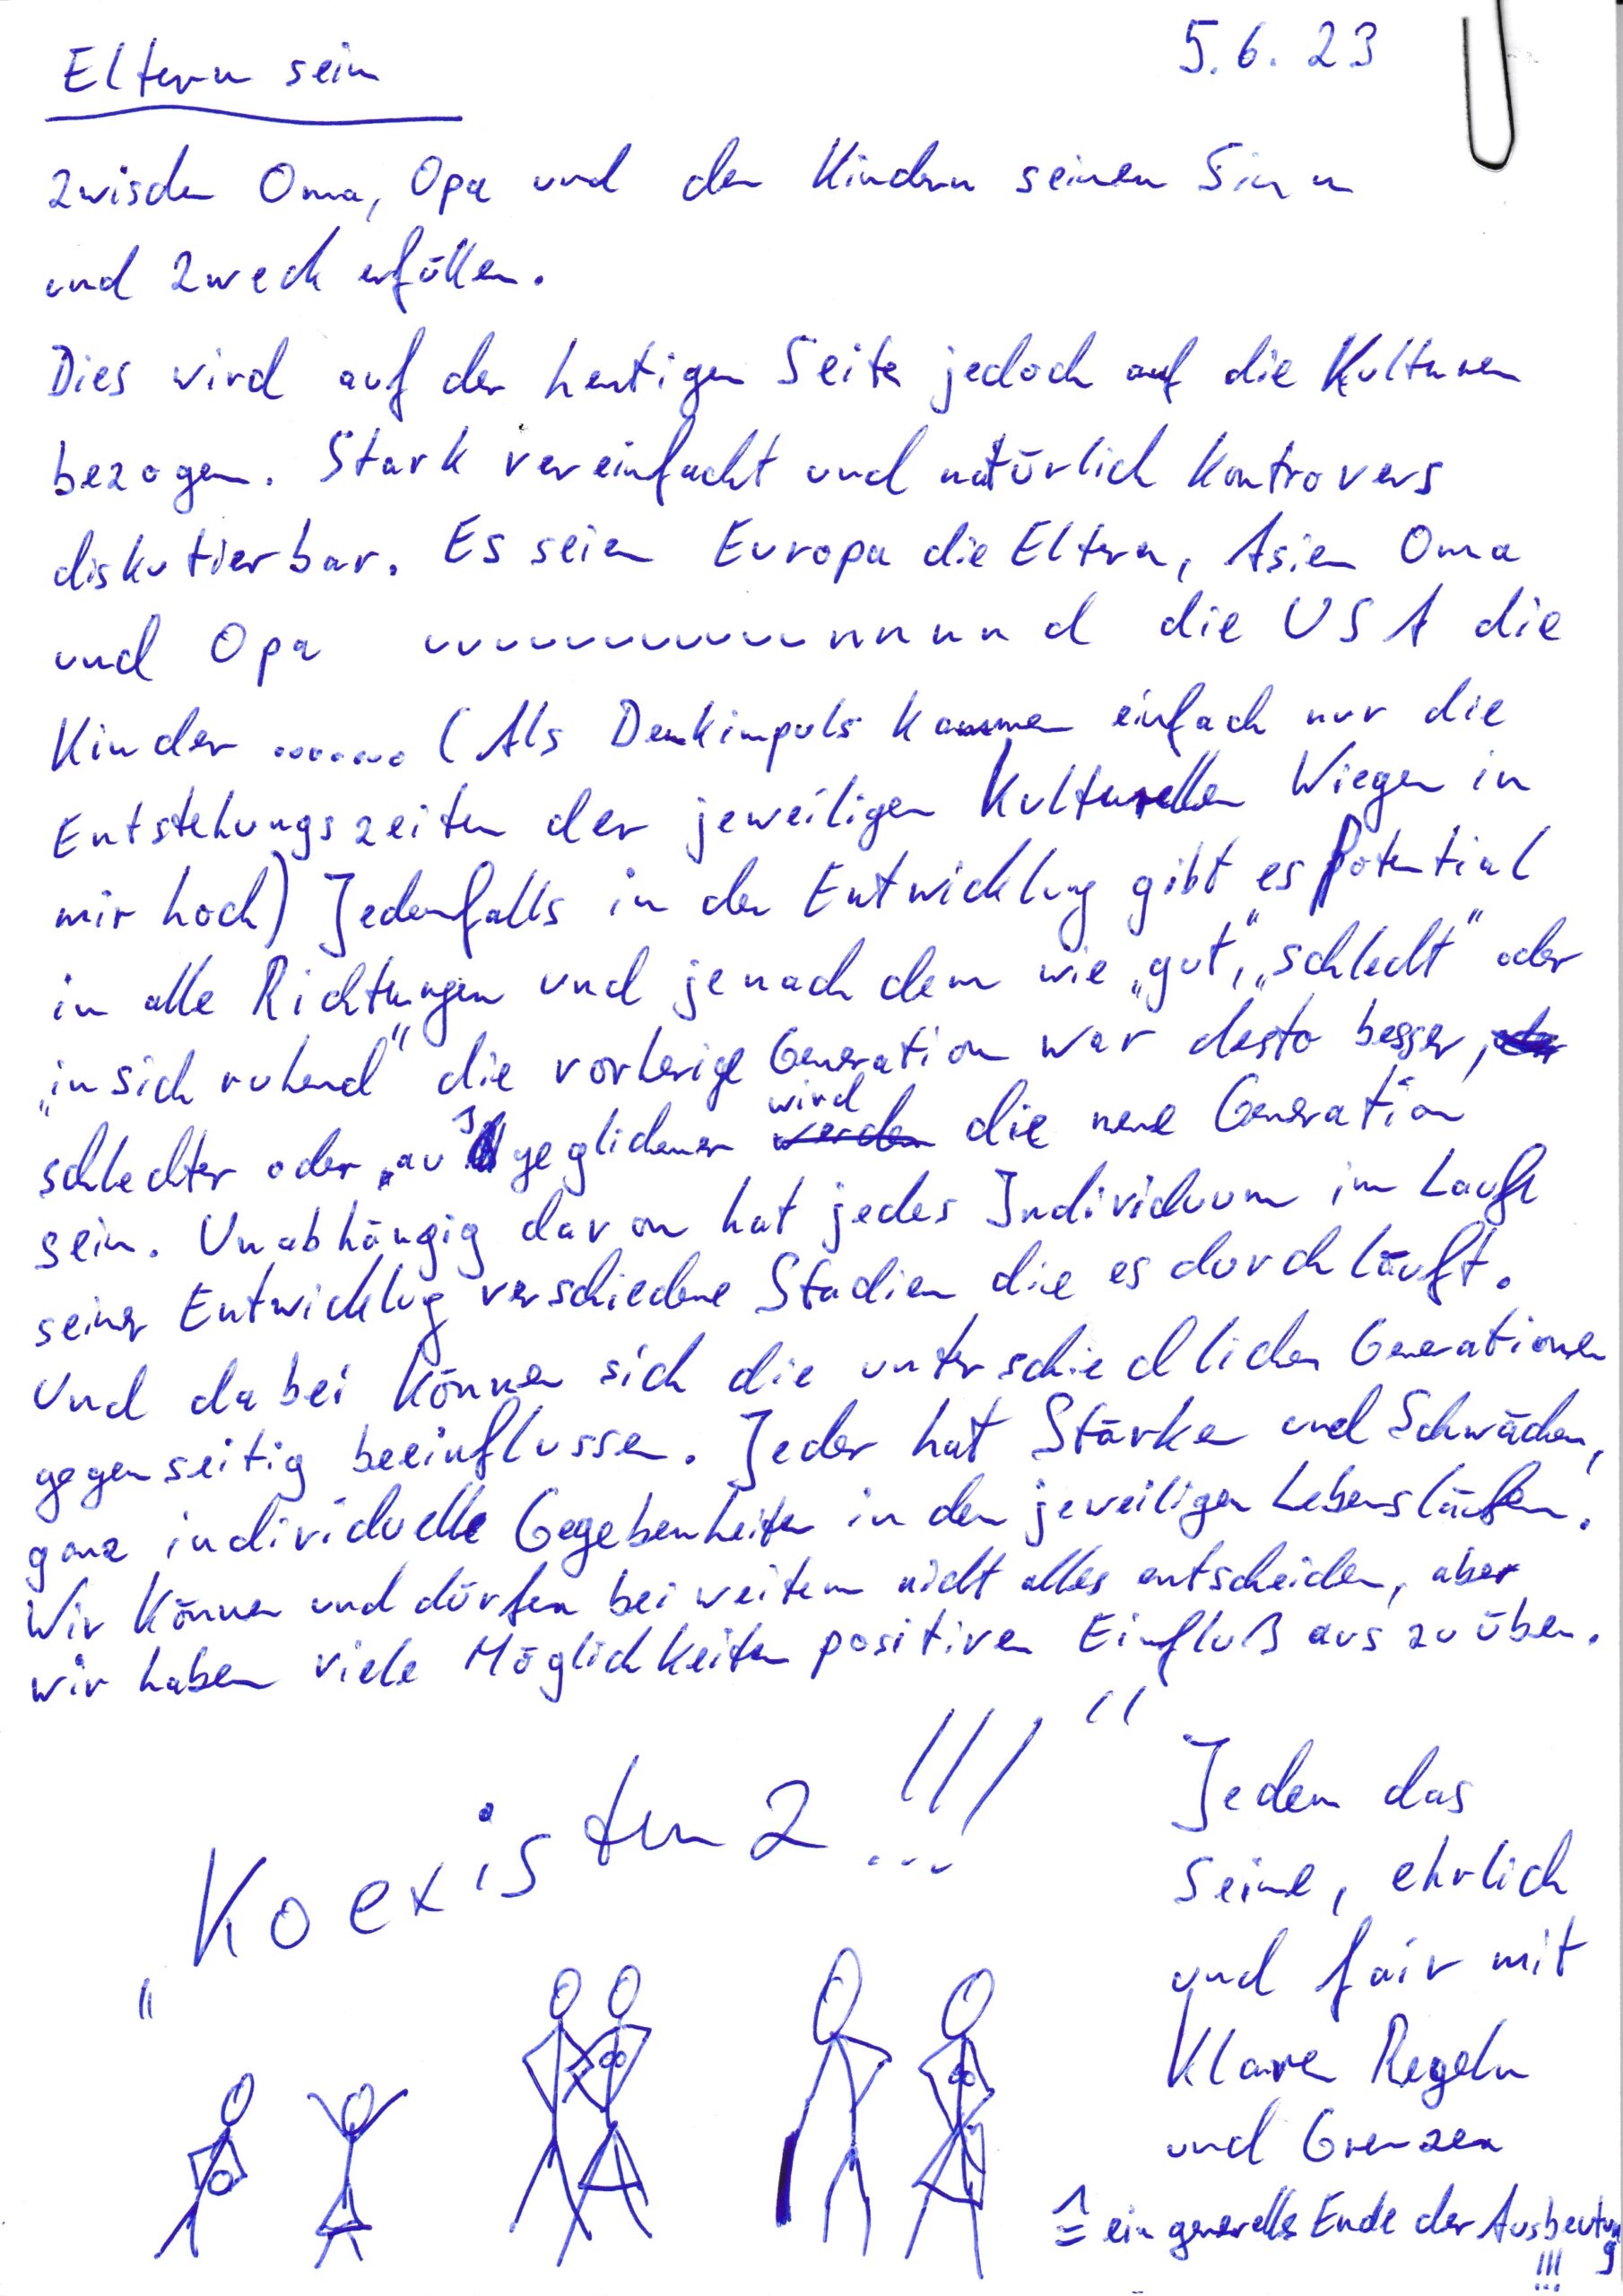 Eltern sein
5.6.23
zwischen Oma, Opa und den Kindern seinen Sinn
und Zweck erfüllen.
Dies wird auf der heutigen Seite jedoch auf die Kulturen
bezogen. Stark vereinfacht und natürlich kontrovers
diskutierbar. Es seien Europa die Eltern, Asien Oma
und Opa uuuuuuuuuuunnnnd die USA die
Kinder ....... (Als Denkimpuls kommen einfach nur die
Entstehungszeiten der jeweiligen kulturellen Wiegen in
mir hoch) Jedenfalls in der Entwicklung gibt es Potential
in alle Richtungen und jenachdem wie „gut“, „schlecht“ oder
„in sich ruhend“ die vorherige Generation war desto besser,
schlechter oder ausgeglichener wird die neue Generation
sein. Unabhängig davon hat jedes Individuum im Laufe
seiner Entwicklug verschiedene Stadien die es durchläuft.
Und dabei können sich die unterschiedlichen Generationen
gegenseitig beeinflussen. Jeder hat Stärken und Schwächen,
ganz individuelle Gegebenheiten in den jeweiligen Lebensläufen.
Wir können und dürfen bei weitem nicht alles entscheiden, aber
wir haben viele Möglichkeiten positiven Einfluß auszuüben.
„Koexistenz !!!“
Jedem das
Seine, ehrlich
und fair mit
klaren Regeln
und Grenzen
≙ ein generelles Ende der Ausbeutung
!!!